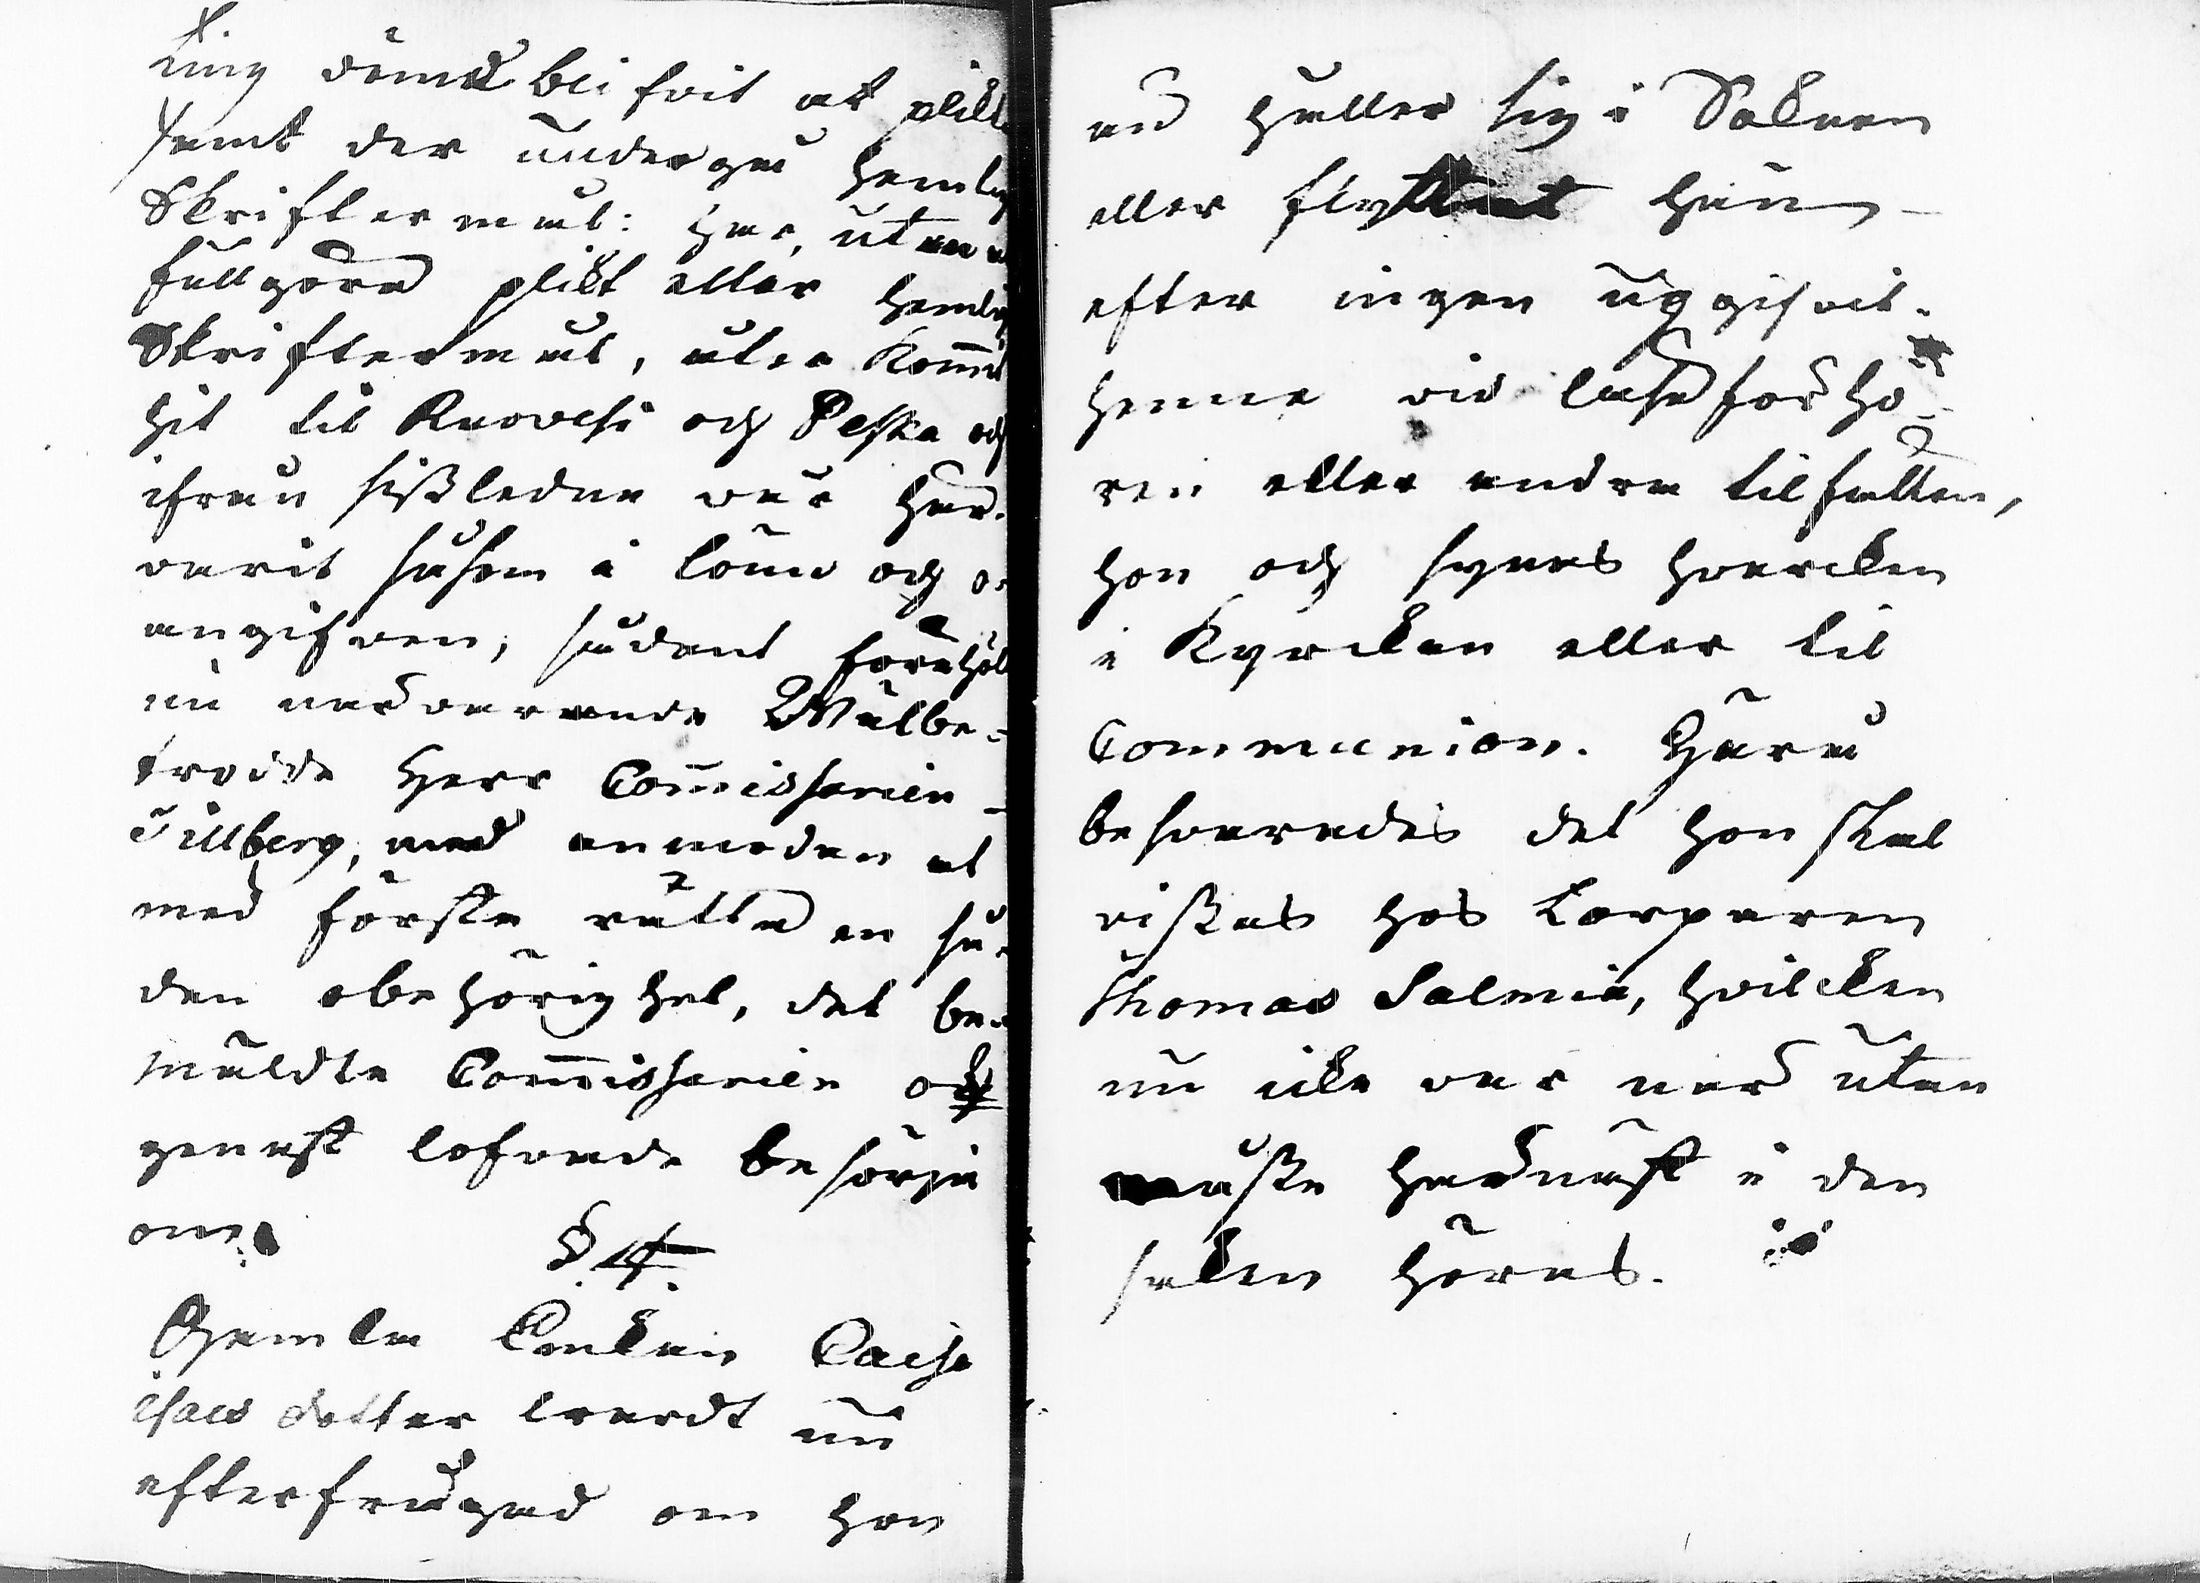 ting dömd blifvit at plikta
samt der undergå hemlig
Skriftermål: har, utan at
fullgöra plikt eller hemlig
Skriftermål, utur Kommit
hit til Ruovesi och Peska och
ifrån sistledne vår har
varit såsom i lönn och o-
angifven, sådant förehölt
nu närvarande Wälbe-
trodde Herr Commissarien
Tillberg, med anmodan at
med första rätta en så-
dan obehörighet, det be-
mäldte Commissarien och
genast lofvade besörja
om.
§ 4.
Gamla Enkan Caisa
isacs dotter lärdt nu
efterfrågad om hon
än håller sig i Soknen
eller flyttat häن
efter ingen uppgifvit
henne vid läseförhö-
ren eller andra tilfällen,
hon och synes hvarcken
i Kyrckan eller til
Communion. Härå
besvarades det hon skal
vistas hos Torparen
Thomas Salmia, hvilcken
nu icke var när utan
måste härnäst i den
saken höras.